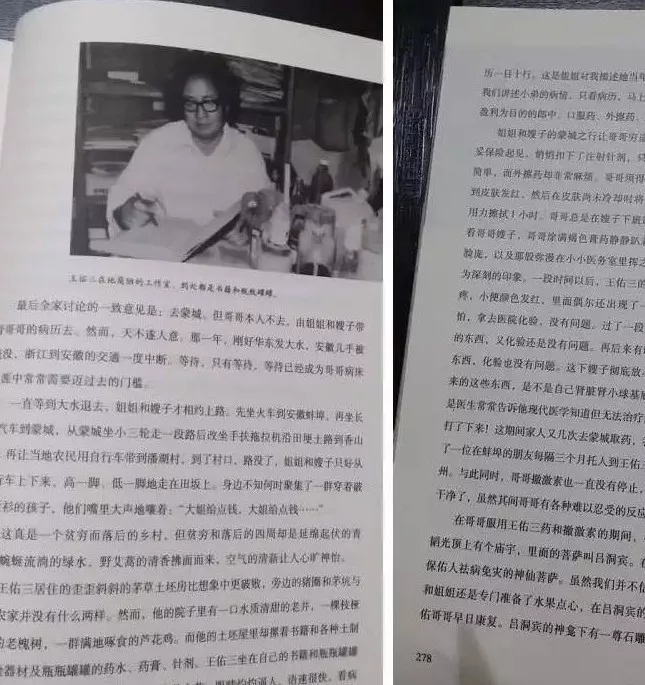 王佑三在他简陋的工作室，到处都是书籍和瓶瓶罐罐。
最后全家讨论的一致意见是：去蒙城。但哥哥本人不去，由姐姐和嫂子带
哥哥的病历去。然而，天不遂人意。那一年，刚好华东发大水，安徽几乎被
没，浙江到安徽的交通一度中断。等待，只有等待，等待已经成为哥哥病床
涯中常常需要迈过去的门槛。
一直等到大水退去，姐姐和嫂子才相约上路。先坐火车到安徽蚌埠，再坐长
汽车到蒙城，从蒙城坐小三轮走一段路后改坐手扶拖拉机沿田埂土路到香山
，再让当地农民用自行车带到潘湖村，到了村口，路没了，姐姐和嫂子只好从
行车上下来，高一脚、低一脚地走在田坂上。身边不知何时聚集了一群穿着破
衫的孩子，他们嘴里大声地嚷着：“大姐给点钱，大姐给点钱……”
这真是一个贫穷而落后的乡村，但贫穷和落后的四周却是延绵起伏的青
蜿蜒流淌的绿水，野艾蒿的清香拂面而来，空气的清新让人心旷神怡。
王佑三居住的歪歪斜斜的茅草土坯房比想象中更破败，旁边的猪圈和茅坑与
农家并没有什么两样。然而，他的院子里有一口水质清甜的老井，一棵枝桠
的老槐树，一群满地啄食的芦花鸡。而他的土坯屋里却摞着书籍和各种土制
器材及瓶瓶罐罐的药水、药膏、针剂。王佑三坐在自己的书籍和瓶瓶罐罐
人，语速很快。看病
历一目十行。这是姐姐对我描述地当年
我们讲述小弟的病情，只看病历，马上
盈利为目的的郎中。口服药、外擦药、
姐姐和嫂子的蒙城之行让哥哥穷追
妥保险起见，悄悄扣下了注射针剂，只
简单，而外擦药却非常麻烦。哥哥须得
到皮肤发红，然后在皮肤尚未冷却时将
用力擦拭1小时。哥哥总是在嫂子下班
着哥哥嫂子，哥哥涂满褐色膏药静静趴
验庞，以及那股弥漫在小小医务室里挥之
为深刻的印象。一段时间以后，王佑三的
疼，小便颜色发红，里面偶尔还出现了一
怕，拿去医院化验，没有问题。过了一段
的东西，又化验还是没有问题。再后来有
东西，化验也没有问题。这下嫂子彻底放
来的这些东西，是不是自己肾脏肾小球基底
是医生常常告诉他现代医学知道但无法治疗
打了下来！这期间家人又几次去蒙城取药，
了一位在蚌埠的朋友每隔三个月托人到王佑三
州。与此同时，哥哥撤激素也一直没有停止，
干净了，虽然其间哥哥有各种难以忍受的反应
在哥哥服用王佑三药和撤激素的期间，
韬光顶上有个庙宇，里面的菩萨叫吕洞宾。在
保佑人祛病免灾的神仙菩萨。虽然我们并不
和姐姐还是专门准备了水果点心，在吕洞宾的
佑哥哥早日康复。吕洞宾的神龛下有一尊石雕
278